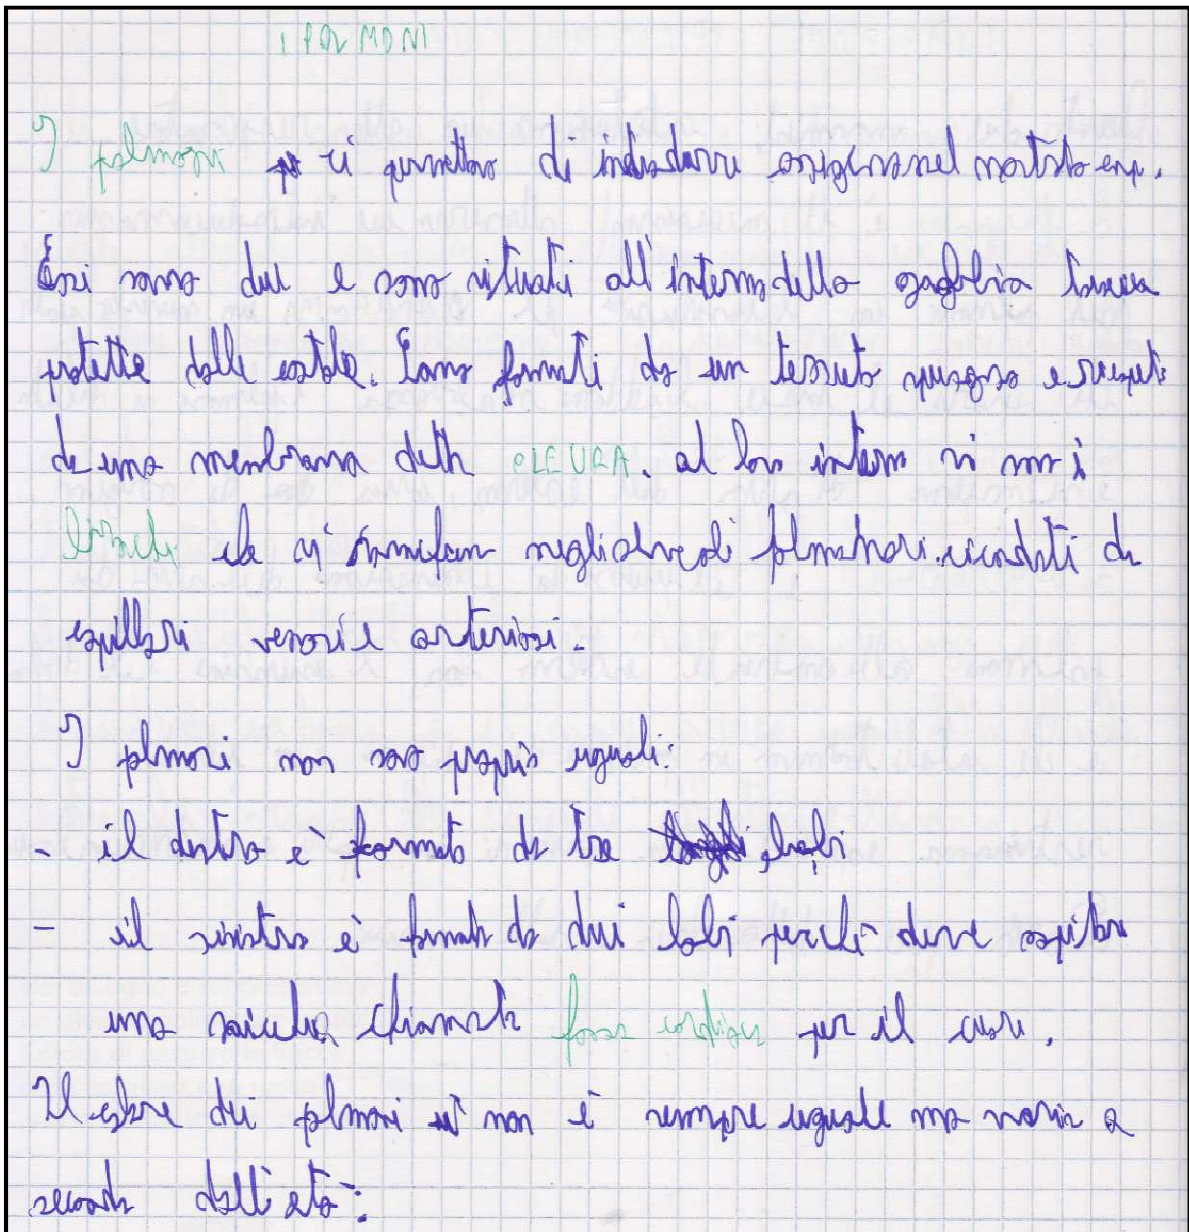 I POLMONI
I polmoni ci permettono di introdurre ossigeno nel nostro corp.
Essi sono due e sono situati all'interno della gabbia toracica
protette dalle costole. Sono formati da un tessuto spugnoso e ricoperti
da una membrana detta PLEURA. al loro interno vi sono i
bronchi che si ramifican negli alveoli polmonari. circondati da
capillari venosi e arteriosi.
I polmoni non sono proprio uguali:
- il destro è formato da tre lobi
- il sinistro è formato da dui lobi perché deve ospitare
una chiamata fossa cardiaca per il cuore.
Il colore dei polmoni non è sempre uguale ma varia a
seconda dell'età: